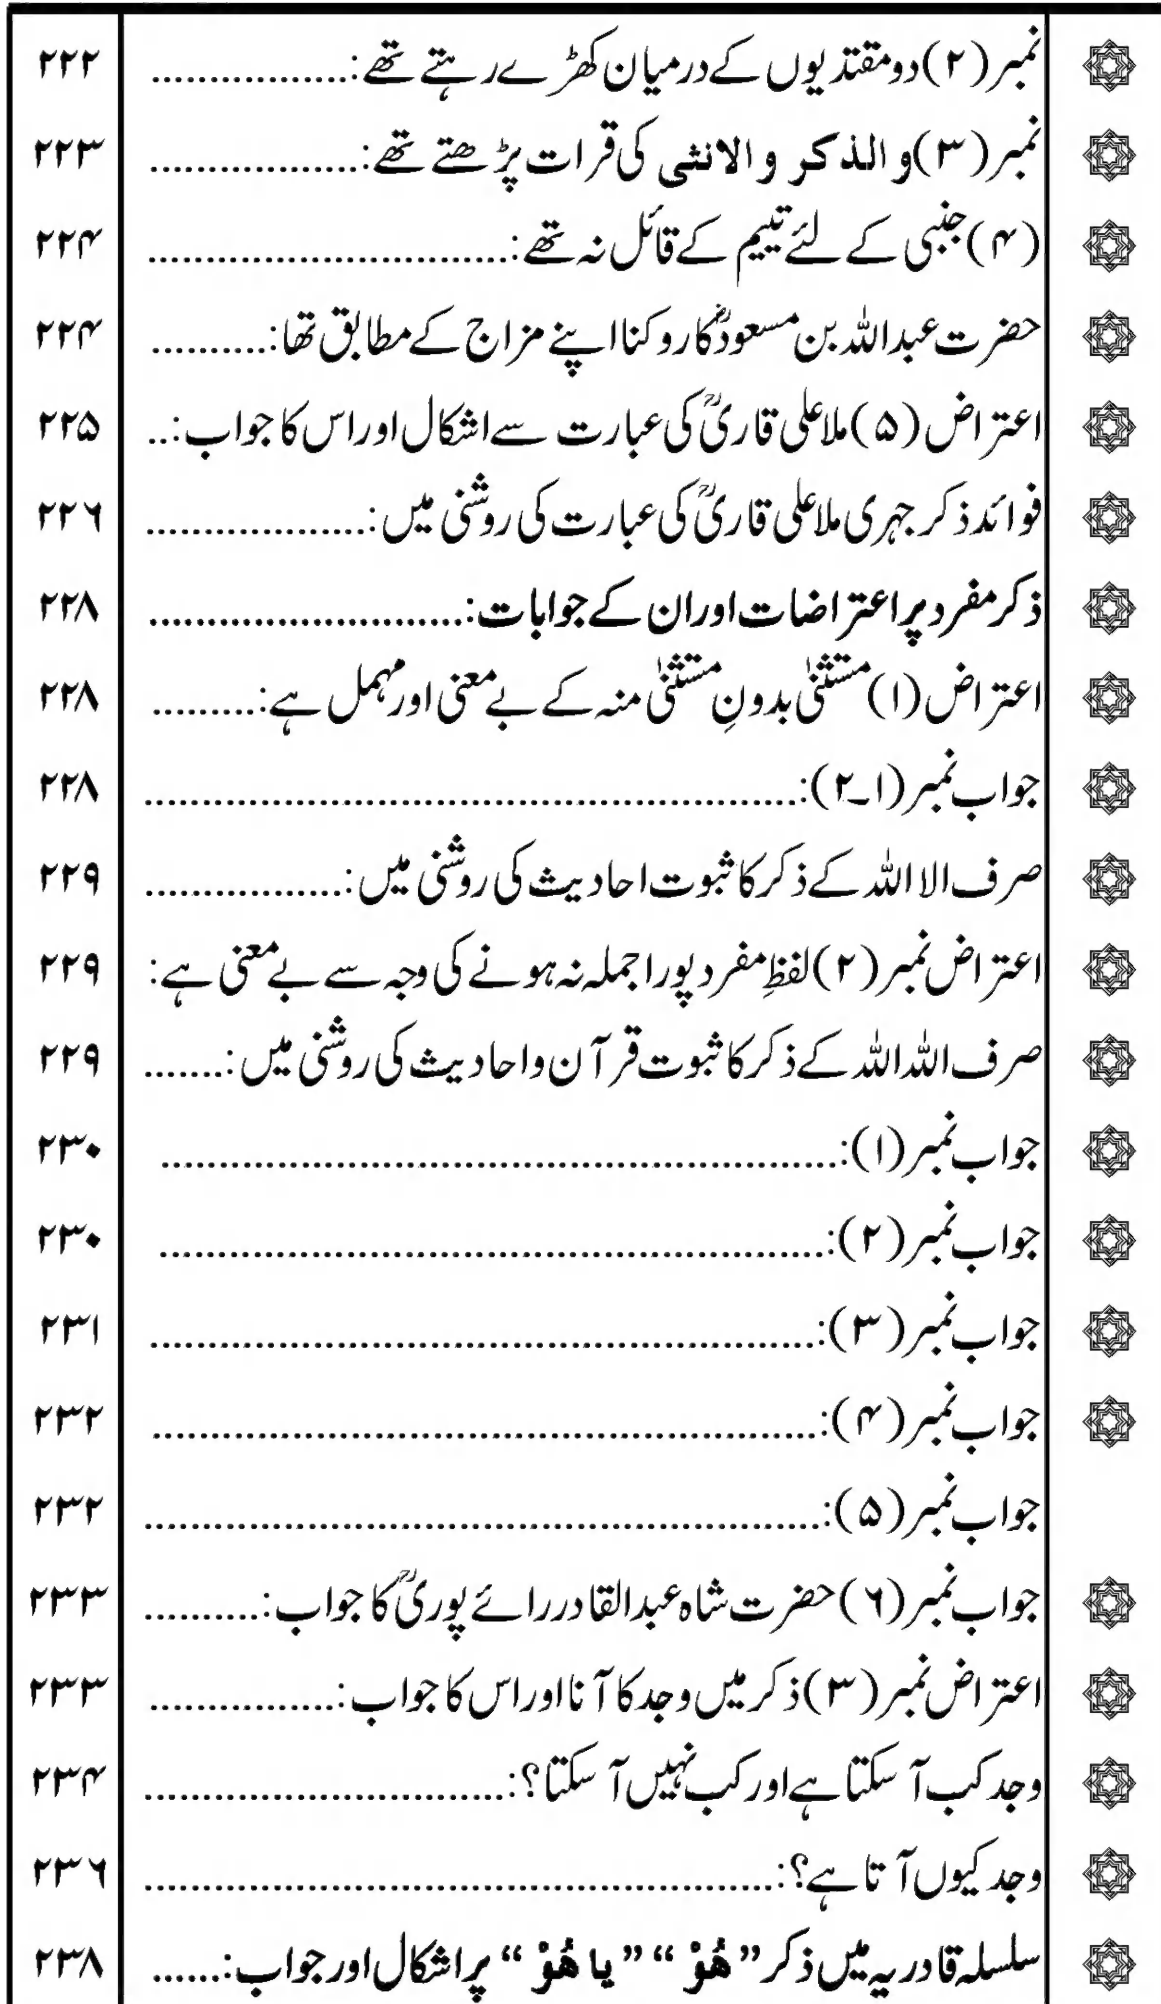 نمبر(۲)دو مقتدیوں کے درمیان کھڑے رہتے تھے:................. ۲۲۲
نمبر(۳) و الذکر و الانثی کی قرات پڑھتے تھے:.................. ۲۲۳
(۴) جنبی کے لئے تییم کے قائل نہ تھے:............................... ۲۲۴
حضرت عبداللہ بن مسعودؓ کا روکنا اپنے مزاج کے مطابق تھا:.......... ۲۲۴
اعتراض (۵) ملا علی قاریؒ کی عبارت سے اشکال اور اس کا جواب:.. ۲۲۵
فوائد ذکر جہری ملا علی قاریؒ کی عبارت کی روشنی میں:................... ۲۲۶
ذکر مفرد پر اعتراضات اور ان کے جوابات:........................... ۲۲۸
اعتراض (۱) مستثنیٰ بدونِ مستثنیٰ منہ کے بے معنی اور مہمل ہے:......... ۲۲۸
جواب نمبر (۱۔۲):......................................................... ۲۲۸
صرف الا اللہ کے ذکر کا ثبوت احادیث کی روشنی میں:................. ۲۲۹
اعتراض نمبر (۲) لفظِ مفرد پورا جملہ نہ ہونے کی وجہ سے بے معنی ہے: ۲۲۹
صرف اللہ اللہ کے ذکر کا ثبوت قرآن و احادیث کی روشنی میں:....... ۲۲۹
جواب نمبر (۱):........................................................... ۲۳۰
جواب نمبر (۲):.......................................................... ۲۳۰
جواب نمبر (۳):.......................................................... ۲۳۱
جواب نمبر (۴):.......................................................... ۲۳۲
جواب نمبر (۵):........................................................... ۲۳۲
جواب نمبر (۶) حضرت شاہ عبدالقادر رائے پوریؒ کا جواب:.......... ۲۳۳
اعتراض نمبر (۳) ذکر میں وجد کا آنا اور اس کا جواب:................ ۲۳۳
وجد کب آ سکتا ہے اور کب نہیں آ سکتا؟:............................... ۲۳۴
وجد کیوں آتا ہے؟:....................................................... ۲۳۶
سلسلہ قادریہ میں ذکر ”ھُوْ“ ”یا ھُوْ“ پر اشکال اور جواب:...... ۲۳۸